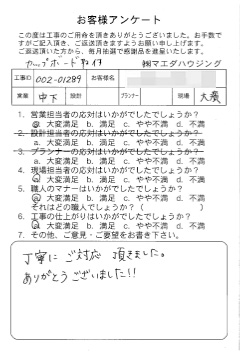 お客様アンケート
この度は工事のご用命を頂きありがとうございました。お手数で
すがご記入頂き、ご返送頂きますようお願い申し上げます。
ご返送頂いた方から、毎月抽選で感謝品を進呈いたします。
カップボード取付 ㈱マエダハウジング
工事ID 002-01289 お客様名
営業 中下 設計 プランナー 現場 大瀬
1. 営業担当者の応対はいかがでしたでしょうか?
a. 大変満足 b. 満足 c. やや不満 d. 不満
2. 設計担当者の応対はいかがでしたでしょうか?
a. 大変満足 b. 満足 c. やや不満 d. 不満
3. プランナーの応対はいかがでしたでしょうか?
a. 大変満足 b. 満足 c. やや不満 d. 不満
4. 現場担当者の応対はいかがでしたでしょうか?
a. 大変満足 b. 満足 c. やや不満 d. 不満
5. 職人のマナーはいかがでしたでしょうか?
a. 大変満足 b. 満足 c. やや不満 d. 不満
それはどの職人でしょうか?( )
6. 工事の仕上がりはいかがでしたでしょうか?
a. 大変満足 b. 満足 c. やや不満 d. 不満
7. その他、ご意見・ご要望をお書き下さい。
丁寧にご対応頂きました。
ありがとうございました!!